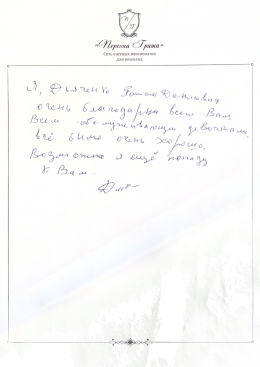 «Перинка Грата»
Сеть частных пансионатов
для пожилых
Я, Дьяченко
очень благодарна всем Вам,
Всем обслуживающим девочкам,
всё было очень хорошо.
Возможно я ещё попаду
к Вам.